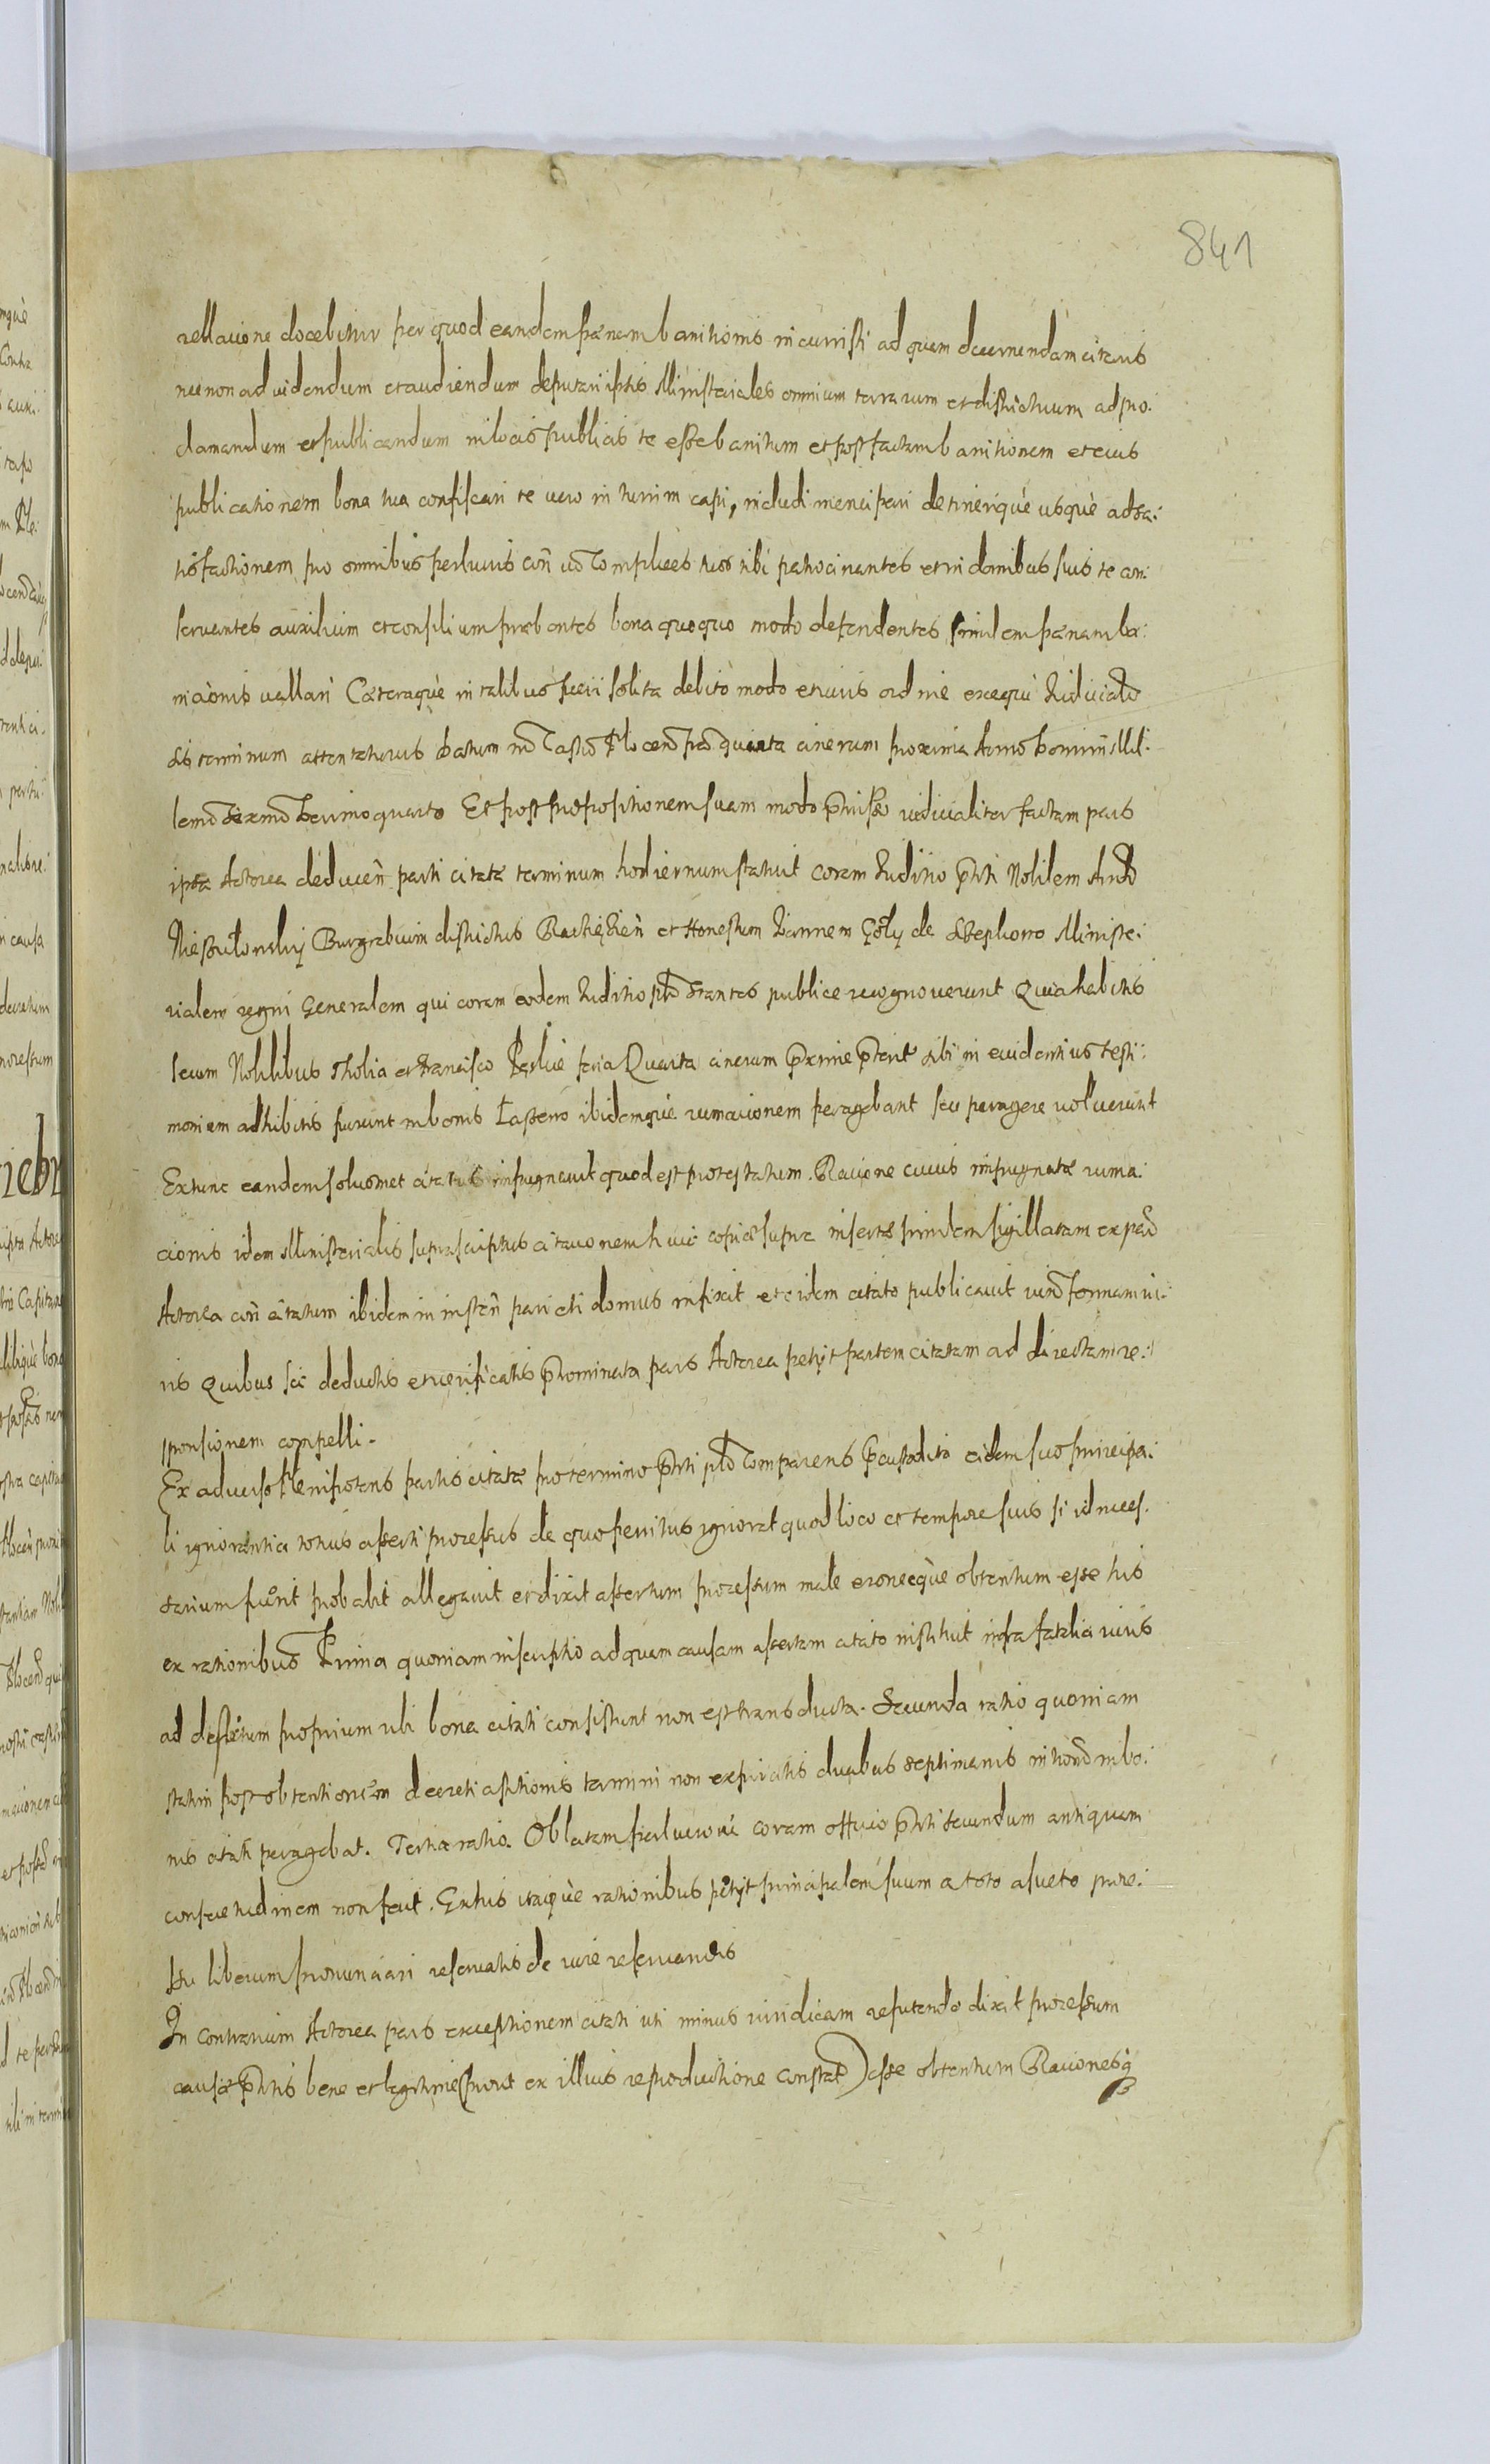 841
rellacione docebitur per quod eandem pænam banitionis incurristi ad quam decernendam citaris
necnon ad videndum et audiendum deputari iptis Ministeriales omnium terrarum et districtuum ad pro:
clamandum et publicandum in locis publicis te esse banitum et post factam banitionem et eius
publicationem bona tua confiscari te vero in turrim capi, includi mencipari detinerique usquè ad sa:
tisfactionem pro omnibus perlucris coñ ac Complices tuos tibi patrocinantes et in domibus suis te con:
servantes auxilium et consilium præbentes bona quoquo modo defendentes similem pænam ba:
nicionis vallari Cæteraquè in talibus fieri solita debito modo et iuris ordine exequi Judicialr
sis terminum attentaturus Datum in Castro Plocen fer quarta cinerum proxima Anno Domini Mil:
lemo Sexmo Decimo quarto Et post propositionem suam modo pmisso iudicialiter factam pars
ipsa Actorea deducen parti citatæ terminum hodiernum statuit coram Juditio pnti Nobilem And
Nieszułowskij Burgrabium districtus Raciązien et Honestum Joannem Goły de Szephorto Ministe:
rialem regni Generalem qui coram eodem Juditio pñ stantes publice recognoverunt Quia habitis
secum Nobilibus Tholia et Francisco feria Quarta cinerum pxime pterit sibi in evidentius testi:
monium adhibitis fuerunt in bonis ibidemquè rumacionem peragebant seu peragere voluerunt
Extunc eandem solusmet citatus inpugnavit quod est protestatum. Racione cuius inpugnatæ ruma:
cionis idem Ministerialis suprascriptus citacionem huic copiæ supra insertæ similem sigillatam ex parte
Actorea coñ citatum ibidem in insten parieti domus infixit et eidem citato publicavit iuxta formam iu:
ris Quibus sic deductis et verificatis pnominata pars Actorea petijt partem citatam ad directam re:
sponsionem compelli.
Ex adverso Plenipotens partis citatæ pro termino pnti pñ Comparens pcustodita eidem suo principa:
li ignorantia totius asserti processus de quo penitus ignorat quod loco et tempore suis si id neces:
sarium fuerit probabit allegavit et dixit assertum processum male eroneequè obtentum esse his
ex rationibus Prima quoniam inscriptio ad quam causam assertam citato instituit infra fatalia iuris
ad districtum proprium ubi bona citati consistunt non est transducta. Secunda ratio quoniam
statim post obtentionem decreti astitionis termini non expiratis duabus septimanis intromis in bo:
nis citati peragebat. Tertia ratio. Oblatam perlucrorum coram officio pnti secundum antiquam
consuetudinem non fecit. Ex his itaquè rationibus petijt principalem suum a toto asserto proce:
ssu liberum pronunciari reservatis de iure reservandis
In contrarium Actorea pars exceptionem citati uti minus iuridicam refutando dixit processum
causæ pntis bene et legitime (prout ex illius reproductione constat) esse obtentum Racionesq